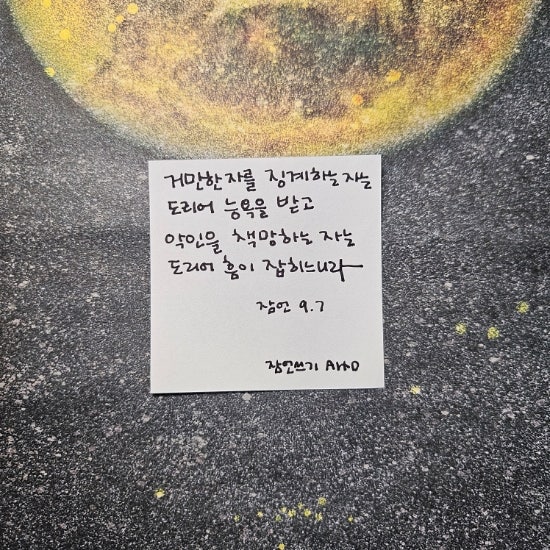 거만한 자를 징계하는 자는
도리어 능욕을 받고
악인을 책망하는 자는
도리어 흠이 잡히느니라
잠언 9.7
잠언쓰기